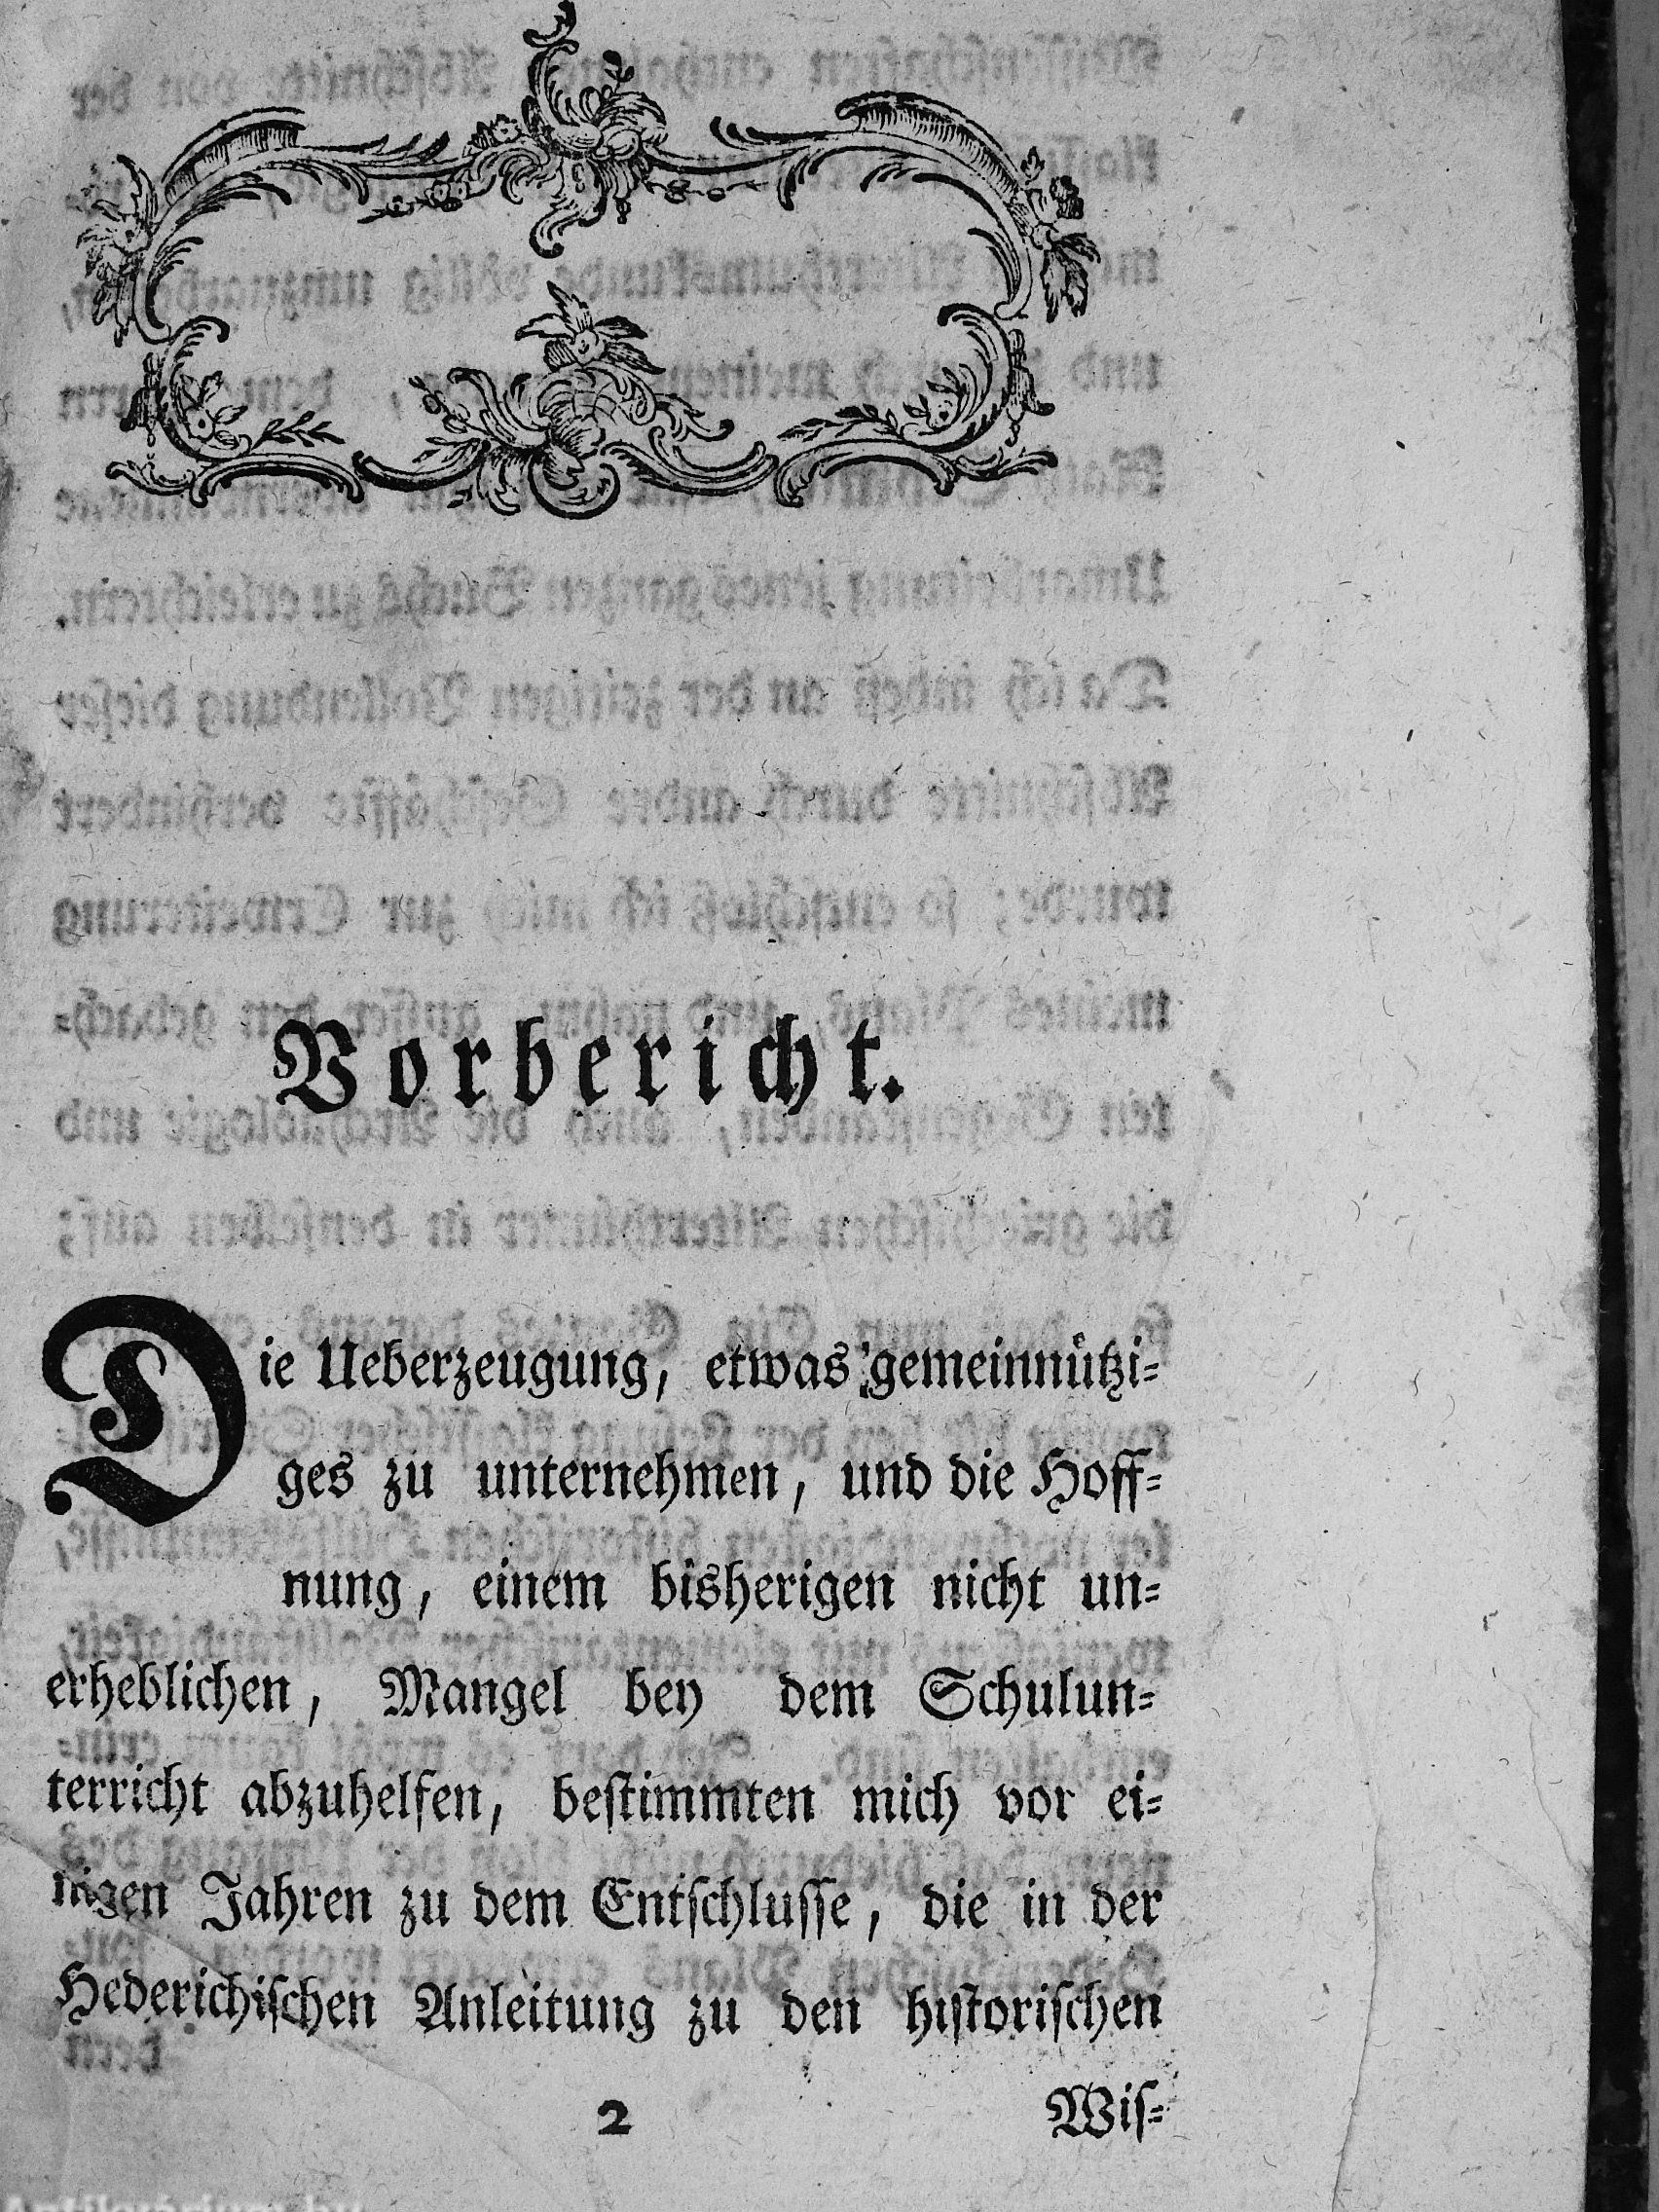 Vorbericht.
Die Ueberzeugung, etwas gemeinnützi-
ges zu unternehmen, und die Hoff-
nung, einem bisherigen nicht un-
erheblichen, Mangel bey dem Schulun-
terricht abzuhelfen, bestimmten mich vor ei-
nigen Jahren zu dem Entschlusse, die in der
Hederichischen Anleitung zu den historischen
2 Wis-